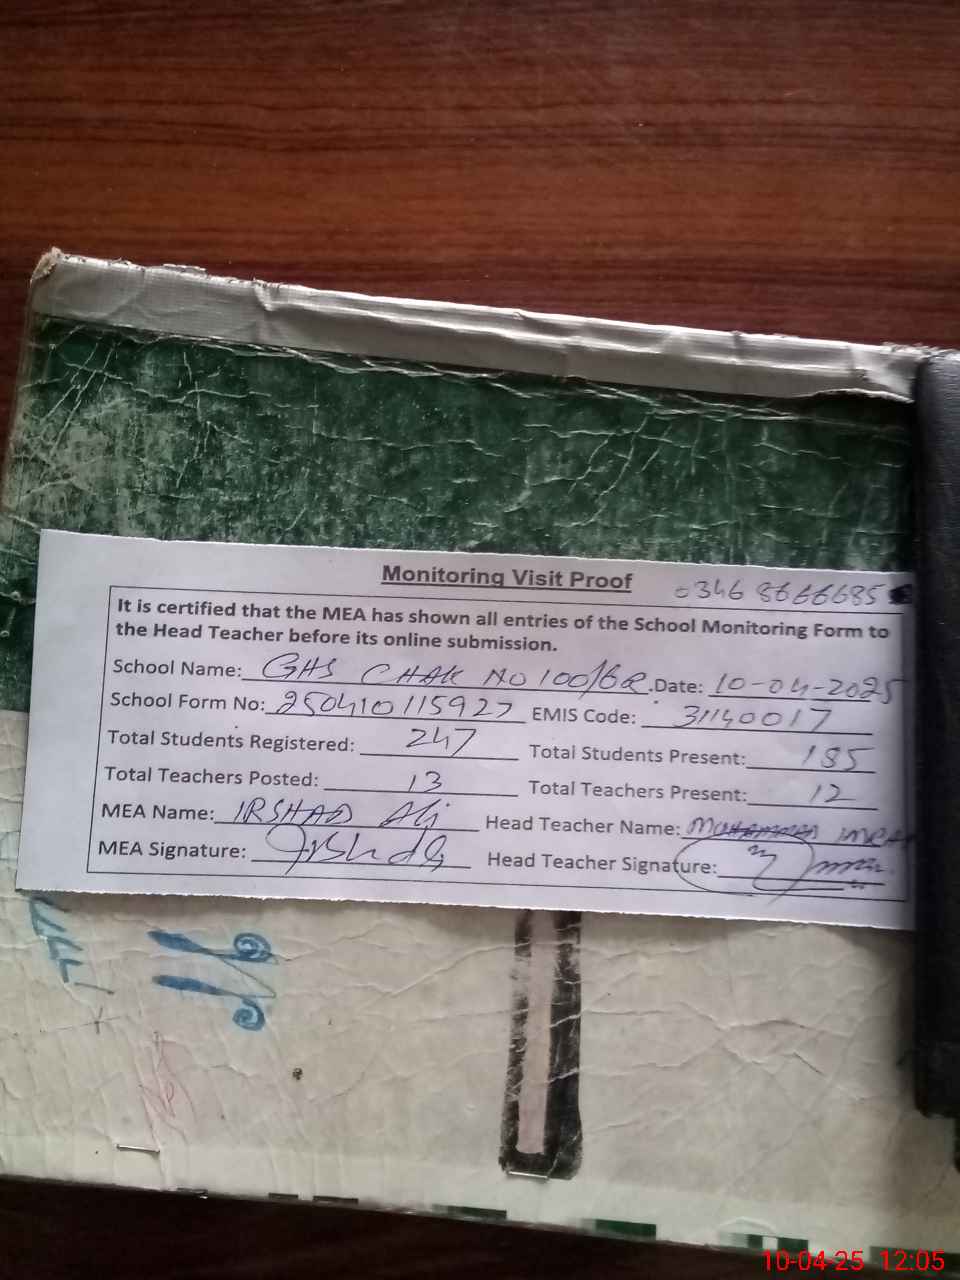 Monitoring Visit Proof
0346 8666685
It is certified that the MEA has shown all entries of the School Monitoring Form to
the Head Teacher before its online submission.
School Name: GHS CHAK NO 100/6R. Date: 10-04-2025
School Form No: 250410115927 EMIS Code: 31140017
Total Students Registered: 247 Total Students Present: 185
Total Teachers Posted: 13 Total Teachers Present: 12
MEA Name: IRSHAD Ali Head Teacher Name: MUHAMMAD
MEA Signature: Head Teacher Signature:
10-04-25 12:05